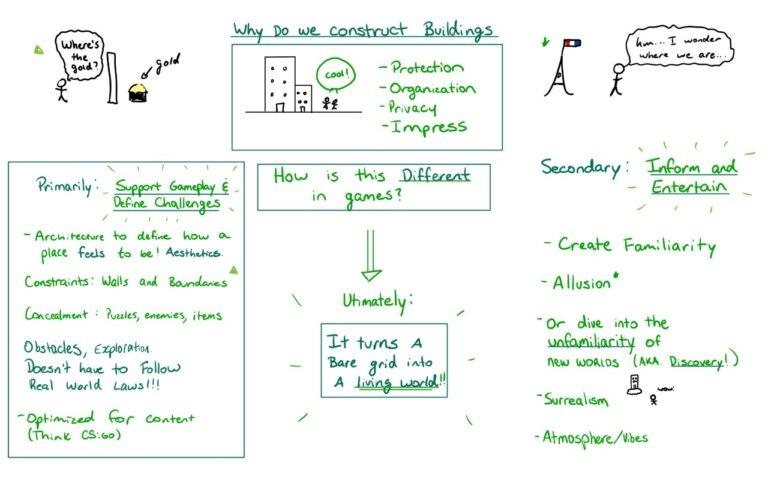 Where's
the
gold?
gold
Why Do we construct Buildings
cool!
- Protection
- Organization
- Privacy
- Impress
hm... I wonder
where we are...
Primarily: Support Gameplay &
Define Challenges
- Architecture to define how a
place feels to be! Aesthetics.
Constraints: Walls and Boundaries
Concealment: Puzzles, enemies, items
Obstacles, Exploration.
Doesn't have to Follow
Real World Laws!!!
- Optimized for content
(Think CS:GO)
How is this Different
in games?
Utimately:
It turns A
Bare grid into
A living world!!
Secondary: Inform and
Entertain
- Create Familiarity
- Allusion*
- Or dive into the
unfamiliarity of
new worlds (AKA. Discovery!)
wow!
- Surrealism
- Atmosphere/Vibes